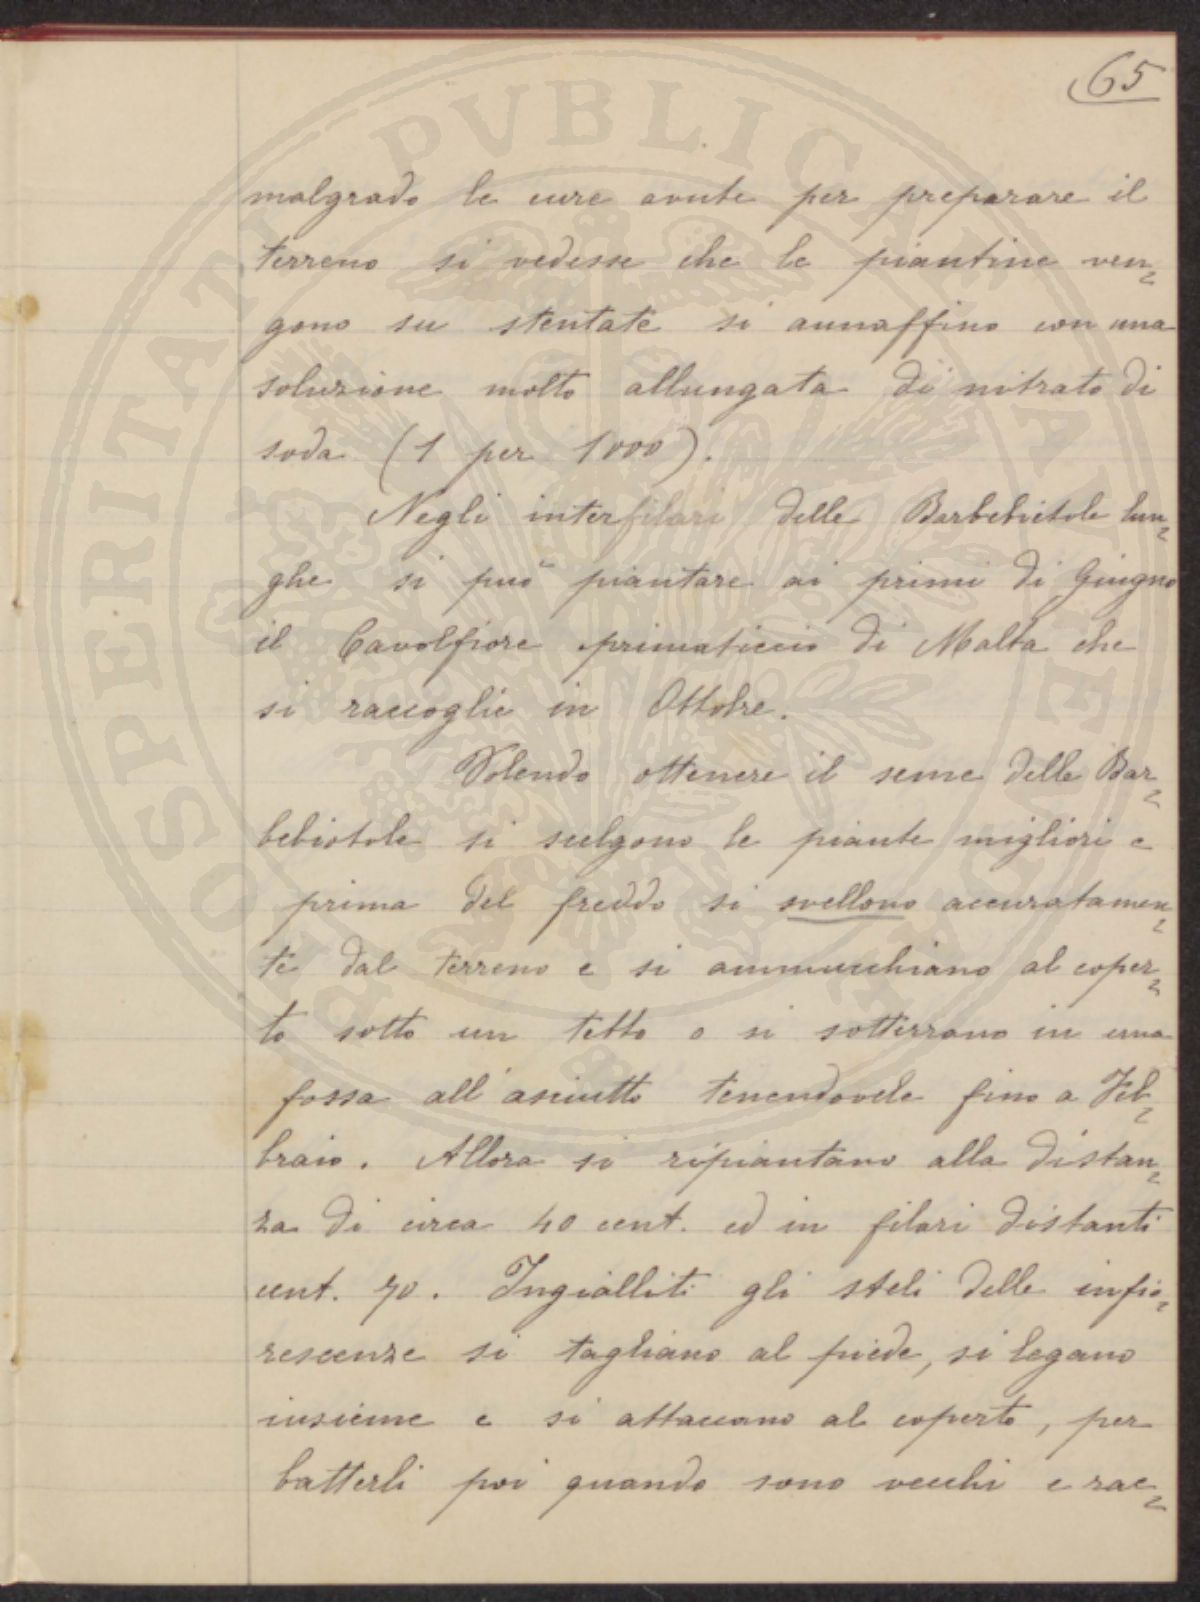 65
malgrado le cure avute per preparare il
terreno si vedesse che le piantine ven=
gono su stentate si annaffino con una
soluzione molto allungata di nitrato di
soda (1 per 1000).
Negli interfilari delle Barbebietole lun=
ghe si può piantare ai primi di Giugno
il Cavolfiore primaticcio di Malta che
si raccoglie in Ottobre.
Volendo ottenere il seme delle Bar=
bebietole si scelgono le piante migliori e
prima del freddo si svellono accuratamen=
te dal terreno e si ammucchiano al coper=
to sotto un tetto o si sotterrano in una
fossa all'asciutto tenendovele fino a Feb=
braio. Allora si ripiantano alla distan=
za di circa 40 cent. ed in filari distanti
cent. 70. Ingialliti gli steli delle infio=
rescenze si tagliano al piede, si legano
insieme e si attaccano al coperto, per
batterli poi quando sono vecchi e rac=
PROSPERITATI PVBLICAE AVGENDAE